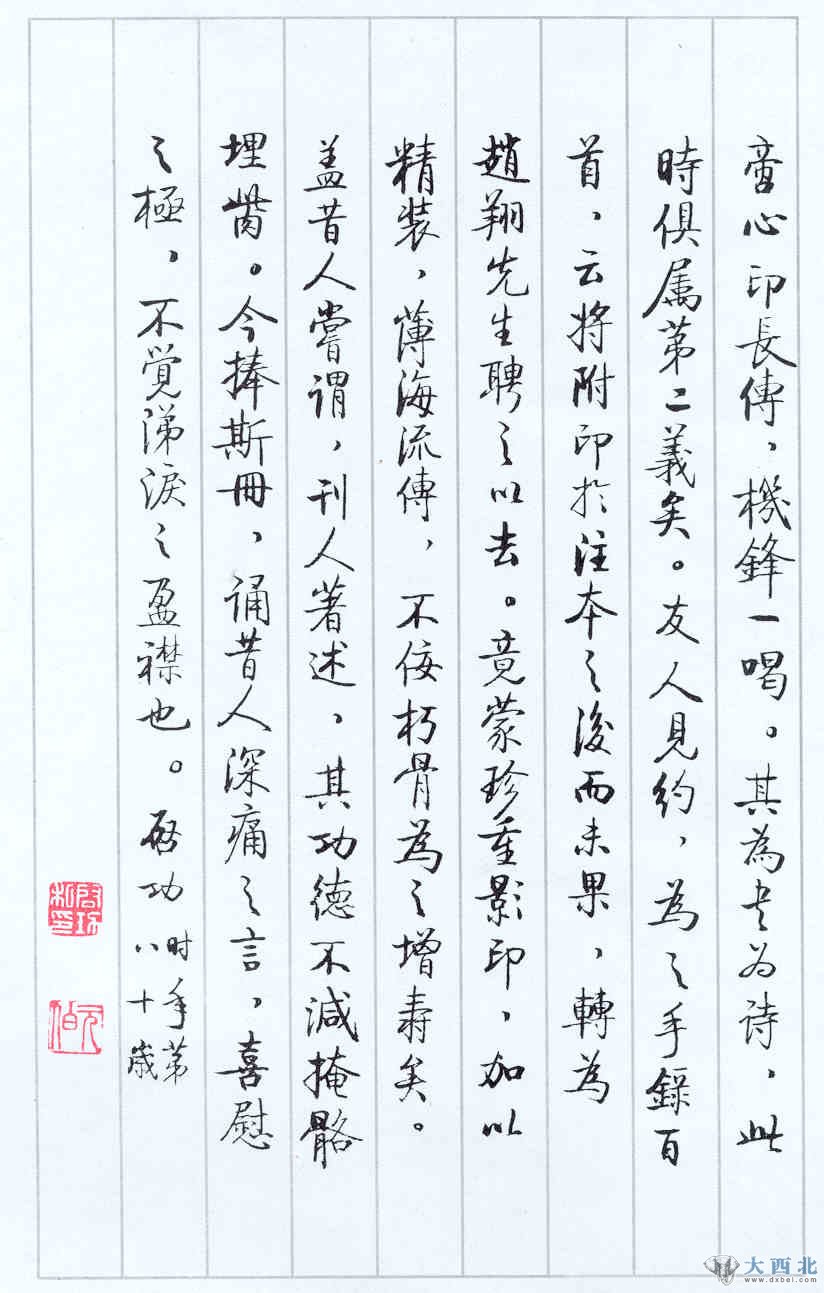 童心印長傳，機鋒一喝。其為史为诗，此
時俱属第二義矣。友人見约，為之手錄百
首，云将附印於注本之後而未果，轉為
趙翔先生聘之以去。竟蒙珍重影印，加以
精装，薄海流傳，不佞朽骨為之增寿矣。
盖昔人嘗謂，刊人著述，其功德不減掩骼
埋胔。今捧斯冊，诵昔人深痛之言，喜慰
之極，不覚涕淚之盈襟也。啓功
时年第
八十歲
啓功私印
元白
大西北
www.dxbei.com